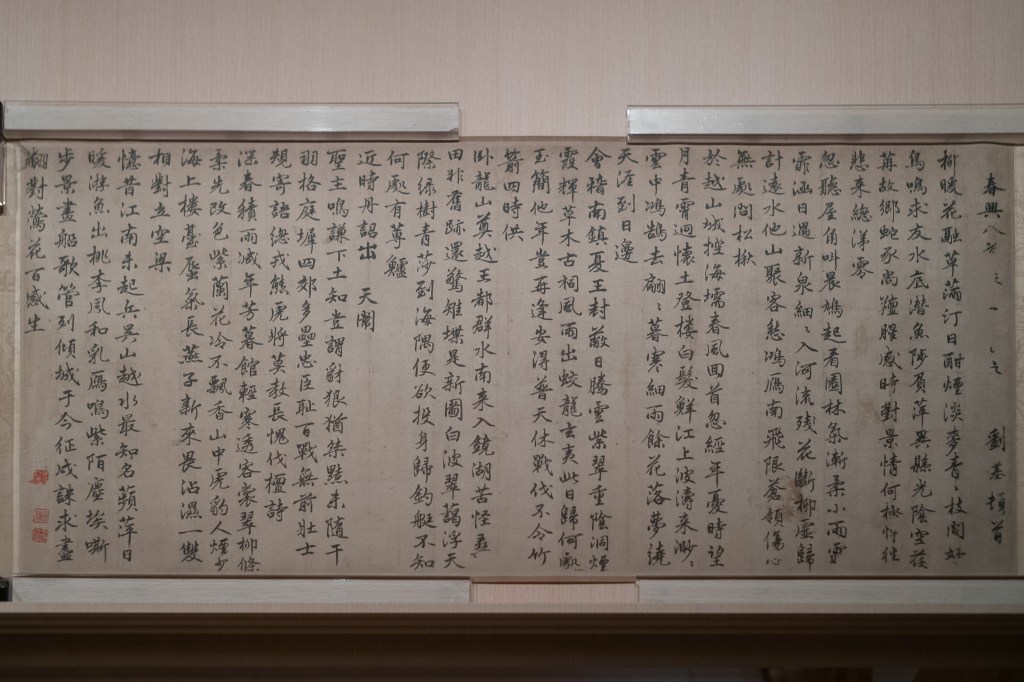 春興八首 之一 劉基頓首
柳暖花融草滿汀日酣煙淡麥青〻枝間好
鳥鳴求友水底潛魚陟負萍異縣光陰空荏
苒故鄉蛇豕尚羶腥感時對景情何極往
悲來總涕零
忽聽屋角叫晨鳩起看園林氣漸柔小雨雪
霏涵日過新泉細〻入河流殘花斷柳虛歸
計遠水他山聚客愁鴻雁南飛限蒼領傷心
無處問松楸
於越山城控海壖春風回首忽經年憂時望
月青霄迥懷土登樓白髮鮮江上波濤來渺〻
雲中鴻鵠去翩〻暮寒細雨餘花落夢繞
天涯到日邊
會稽南鎮夏王封蔽日騰雲紫翠重陰洞煙
霞輝草木古祠風雨出蛟龍玄夷此日歸何處
玉簡他年豈再逢安得普天休戰伐不令竹
箭四時供
臥龍山奠越王都群水南來入鏡湖苦怪桑
田非舊跡還驚雉堞是新圖白波翠藹浮天
際綠樹青莎到海隅便欲投身歸釣艇不知
何處有蓴鱸
近時丹詔出 天闕
聖主鳴謙下士知豈謂豺狼猶桀黠未隨干
羽格庭墀四郊多壘忠臣恥百戰無前壯士
規寄語總戎熊虎將莫教長愧伐檀詩
深春積雨減年芳暮館輕寒透客裳翠柳條
柔先改色紫蘭花冷不飄香山中虎豹人煙少
海上樓臺蜃氣長燕子新來畏沾濕一雙
相對立空梁
憶昔江南未起兵吳山越水最知名蘋苹日
暖游魚出桃李風和乳雁鳴紫陌塵埃嘶
步景畫船歌管列傾城于今征戍誅求盡
翻對鶯花百感生